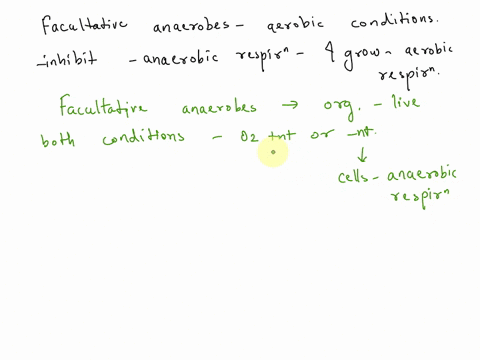 Facultative anaerobes - aerobic conditions.
-inhibit - anaerobic respirⁿ - & grow - aerobic
respirⁿ.
Facultative anaerobes → org. - live
both conditions - O2 +nt or -nt.
↓
cells - anaerobic
respirⁿ